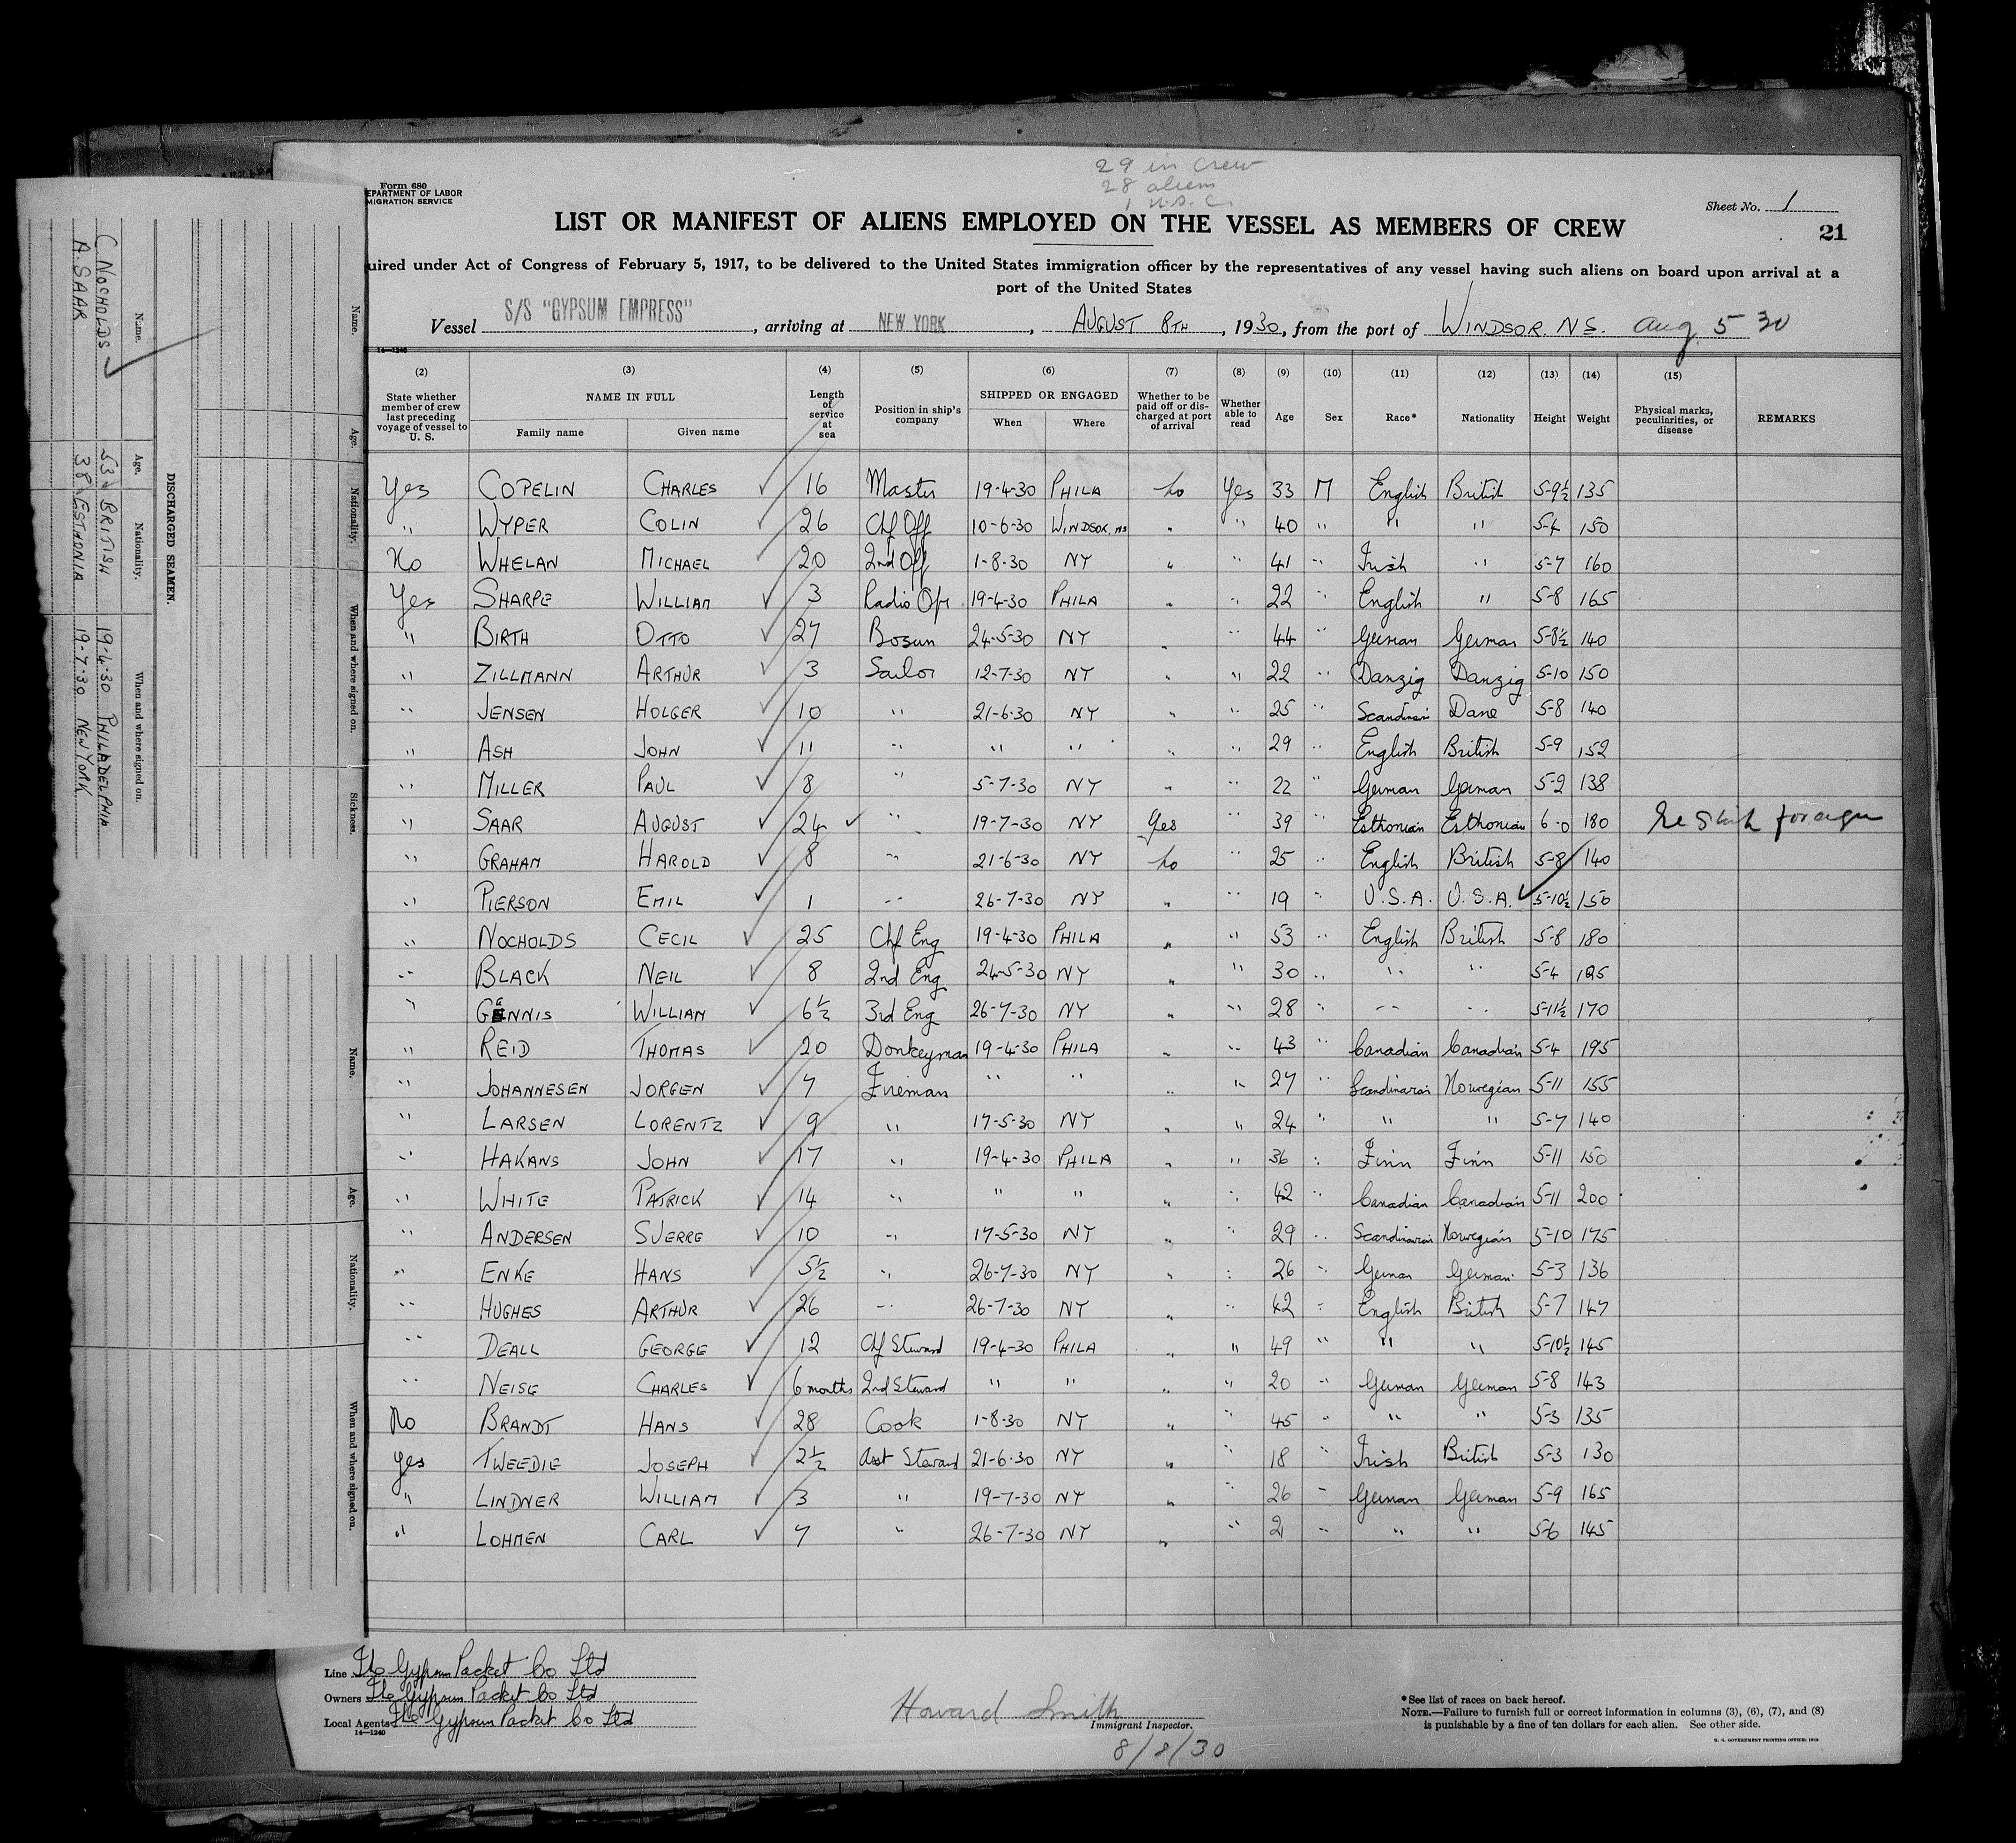 29 in crew
28 aliens
1 U.S.C.
Form 680
EPARTMENT OF LABOR
MIGRATION SERVICE
Sheet No. 1
LIST OR MANIFEST OF ALIENS EMPLOYED ON THE VESSEL AS MEMBERS OF CREW
21
uired under Act of Congress of February 5, 1917, to be delivered to the United States immigration officer by the representatives of any vessel having such aliens on board upon arrival at a
port of the United States
Vessel S/S "GYPSUM EMPRESS", arriving at NEW YORK, AUGUST 8TH, 1930, from the port of WINDSOR. N.S. Aug 5 30
14—1240
(2) (3) (4) (5) (6) (7) (8) (9) (10) (11) (12) (13) (14) (15)
State whether member of crew last preceding voyage of vessel to U. S. NAME IN FULL Family name Given name Length of service at sea Position in ship's company SHIPPED OR ENGAGED When Where Whether to be paid off or discharged at port of arrival Whether able to read Age Sex Race* Nationality Height Weight Physical marks, peculiarities, or disease REMARKS
Yes COPELIN CHARLES ✓ 16 Master 19-4-30 PHILA no Yes 33 M English British 5-9½ 135
" WYPER COLIN ✓ 26 Chf Off 10-6-30 WINDSOR. NS " " 40 " " " 5-4 150
No WHELAN MICHAEL ✓ 20 2nd Off 1-8-30 NY " " 41 " Irish " 5-7 160
Yes SHARPE WILLIAM ✓ 3 Radio Opr 19-4-30 PHILA " " 22 " English " 5-8 165
" BIRTH OTTO ✓ 27 Bosun 24-5-30 NY " " 44 " German German 5-8½ 140
" ZILLMANN ARTHUR ✓ 3 Sailor 12-7-30 NY " " 22 " Danzig Danzig 5-10 150
" JENSEN HOLGER ✓ 10 " 21-6-30 NY " " 25 " Dane 5-8 140
" ASH JOHN ✓ 11 " " " " " 29 " English British 5-9 152
" MILLER PAUL ✓ 8 " 5-7-30 NY " " 22 " German German 5-2 138
" SAAR AUGUST ✓ 24 ✓ " 19-7-30 NY Yes " 39 " Esthonian Esthonian 6-0 180
" GRAHAM HAROLD ✓ 8 " 21-6-30 NY no " 25 " English British 5-8 140
" PIERSON EMIL ✓ 1 " 26-7-30 NY " " 19 " U.S.A. U.S.A. ✓ 5-10½ 150
" NOCHOLDS CECIL ✓ 25 Chf Eng 19-4-30 PHILA " " 53 " English British 5-8 180
" BLACK NEIL ✓ 8 2nd Eng 24-5-30 NY " " 30 " " " 5-4
" GENNIS WILLIAM ✓ 6½ 3rd Eng 26-7-30 NY " " 28 " " " 5-11½ 170
" REID THOMAS ✓ 20 Donkeyman 19-4-30 PHILA " " 43 " Canadian Canadian 5-4 195
" JOHANNESEN JORGEN ✓ 7 Fireman " " " " 27 " Scandinavian Norwegian 5-11 155
" LARSEN LORENTZ ✓ 9 " 17-5-30 NY " " 24 " " " 5-7 140
" HAKANS JOHN ✓ 17 " 19-4-30 PHILA " " 36 " Finn Finn 5-11 150
" WHITE PATRICK ✓ 14 " " " " " 42 " Canadian Canadian 5-11 200
" ANDERSEN SJERRE ✓ 10 " 17-5-30 NY " " 29 " Scandinavian Norwegian 5-10 175
" ENKE HANS ✓ 5½ " 26-7-30 NY " " 26 " German German 5-3 136
" HUGHES ARTHUR ✓ 26 " 26-7-30 NY " " 42 " English British 5-7 147
" DEALL GEORGE ✓ 12 Chf Steward 19-4-30 PHILA " " 49 " " " 5-10½ 145
" NEISE CHARLES ✓ 6 months 2nd Steward " " " " 20 " German German 5-8 143
No BRANDT HANS ✓ 28 Cook 1-8-30 NY " " 45 " " " 5-3 135
Yes TWEEDIE JOSEPH ✓ 2½ Asst Steward 21-6-30 NY " " 18 " Irish British 5-3 130
" LINDNER WILLIAM ✓ 3 " 19-7-30 NY " " 26 " German German 5-9 165
" LOHMEN CARL ✓ 7 " 26-7-30 NY " " 21 " " " 5-6 145
Line The Gypsum Packet Co Ltd
Owners The Gypsum Packet Co Ltd
Local Agents The Gypsum Packet Co Ltd
14—1240
Howard Smith
Immigrant Inspector.
8/8/30
*See list of races on back hereof.
NOTE.—Failure to furnish full or correct information in columns (3), (6), (7), and (8)
is punishable by a fine of ten dollars for each alien. See other side.
U. S. GOVERNMENT PRINTING OFFICE: 1929
DISCHARGED SEAMEN.
Name. Age. Nationality. When and where signed on.
C NOCHOLDS ✓ 53 BRITISH 19-4-30 PHILADELPHIA
A. SAAR 38 ESTHONIA 19-7-30 NEW YORK
Name. Age. Nationality. When and where signed on. Sickness.
Name. Age. Nationality. When and where signed on.